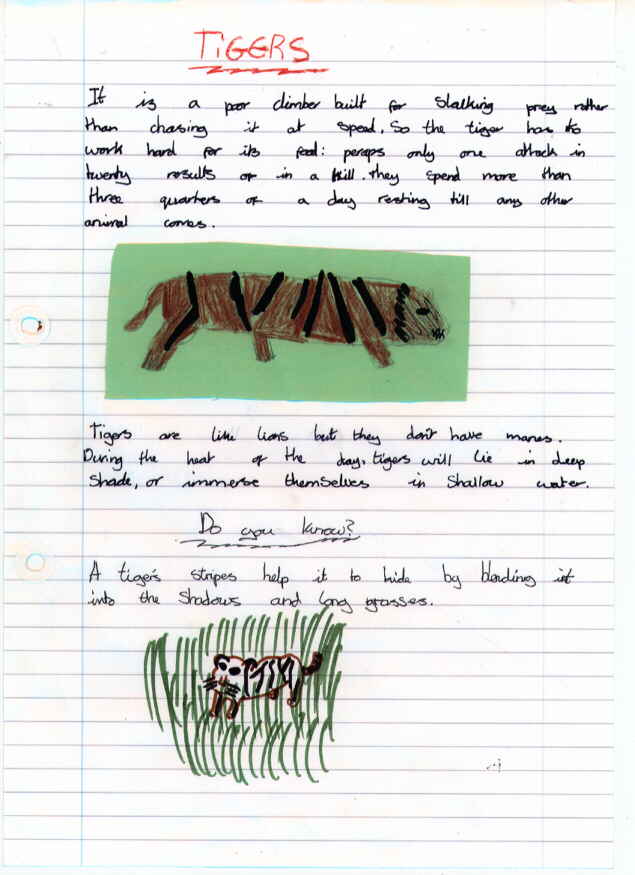 TiGERS
It is a poor climber built for stalking prey rather
than chasing it at speed. So the tiger has to
work hard for its food: peraps only one attack in
twenty results or in a kill. they spend more than
three quarters of a day resting till any other
animal comes.
Tigers are like lions but they don't have manes.
During the heat of the day, tigers will lie in deep
shade, or immerse themselves in shallow water.
Do you know?
A tiger's stripes help it to hide by blending it
into the shadows and long grasses.